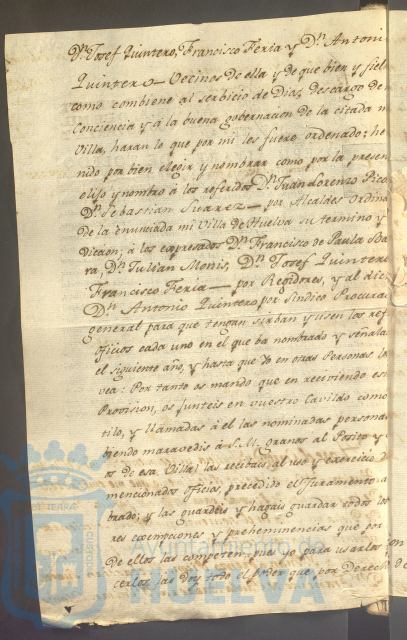 Dn. Josef Quintero, Francisco Feria y Dn. Antoni
Quintero Vecinos de ella y de que bien y fiel
como combiene al serbicio de Dios, descargo de
Conciencia y á la buena gobernacion de la citada m
Villa, haran lo que por mi les fuere ordenado; he
nido por bien elegir y nombrar como por la presen
elijo y nombro á los referidos Dn. Fran Lorenzo Pico
Dn. Sebastian Suarez por Alcaldes Ordina
de la enunciada mi Villa de Huelva su termino y
diccion; á los expresados Dn. Francisco de Paula Ba
ra, Dn. Julian Monis, Dn. Josef Quintero
Francisco Feria por Regidores, y al dic
Dn. Antonio Quintero por Sindico Procurad
general para que tengan sirban y usen los re
Oficios cada uno en el que ba nombrado y señala
el siguiente año, y hasta que Yo en otras Personas
vea: Por tanto os mando que en reciviendo est
Provision, os junteis en vuestro Cavildo como
tilo, y llamadas á él las nominadas persona
biendo maravedis á S.M. granos al Posito y
os de esa Villa) las recibais al uso y exercicio d
mencionados oficios, precedido el Juramento a
brado; y las guardeis y hagais guardar todos los
res exempciones y preheminencias que por
De ellos las competen, pues yo para usarlos
cerlos las doy todo el poder que por Derecho
Ayuntamiento de
HUELVA